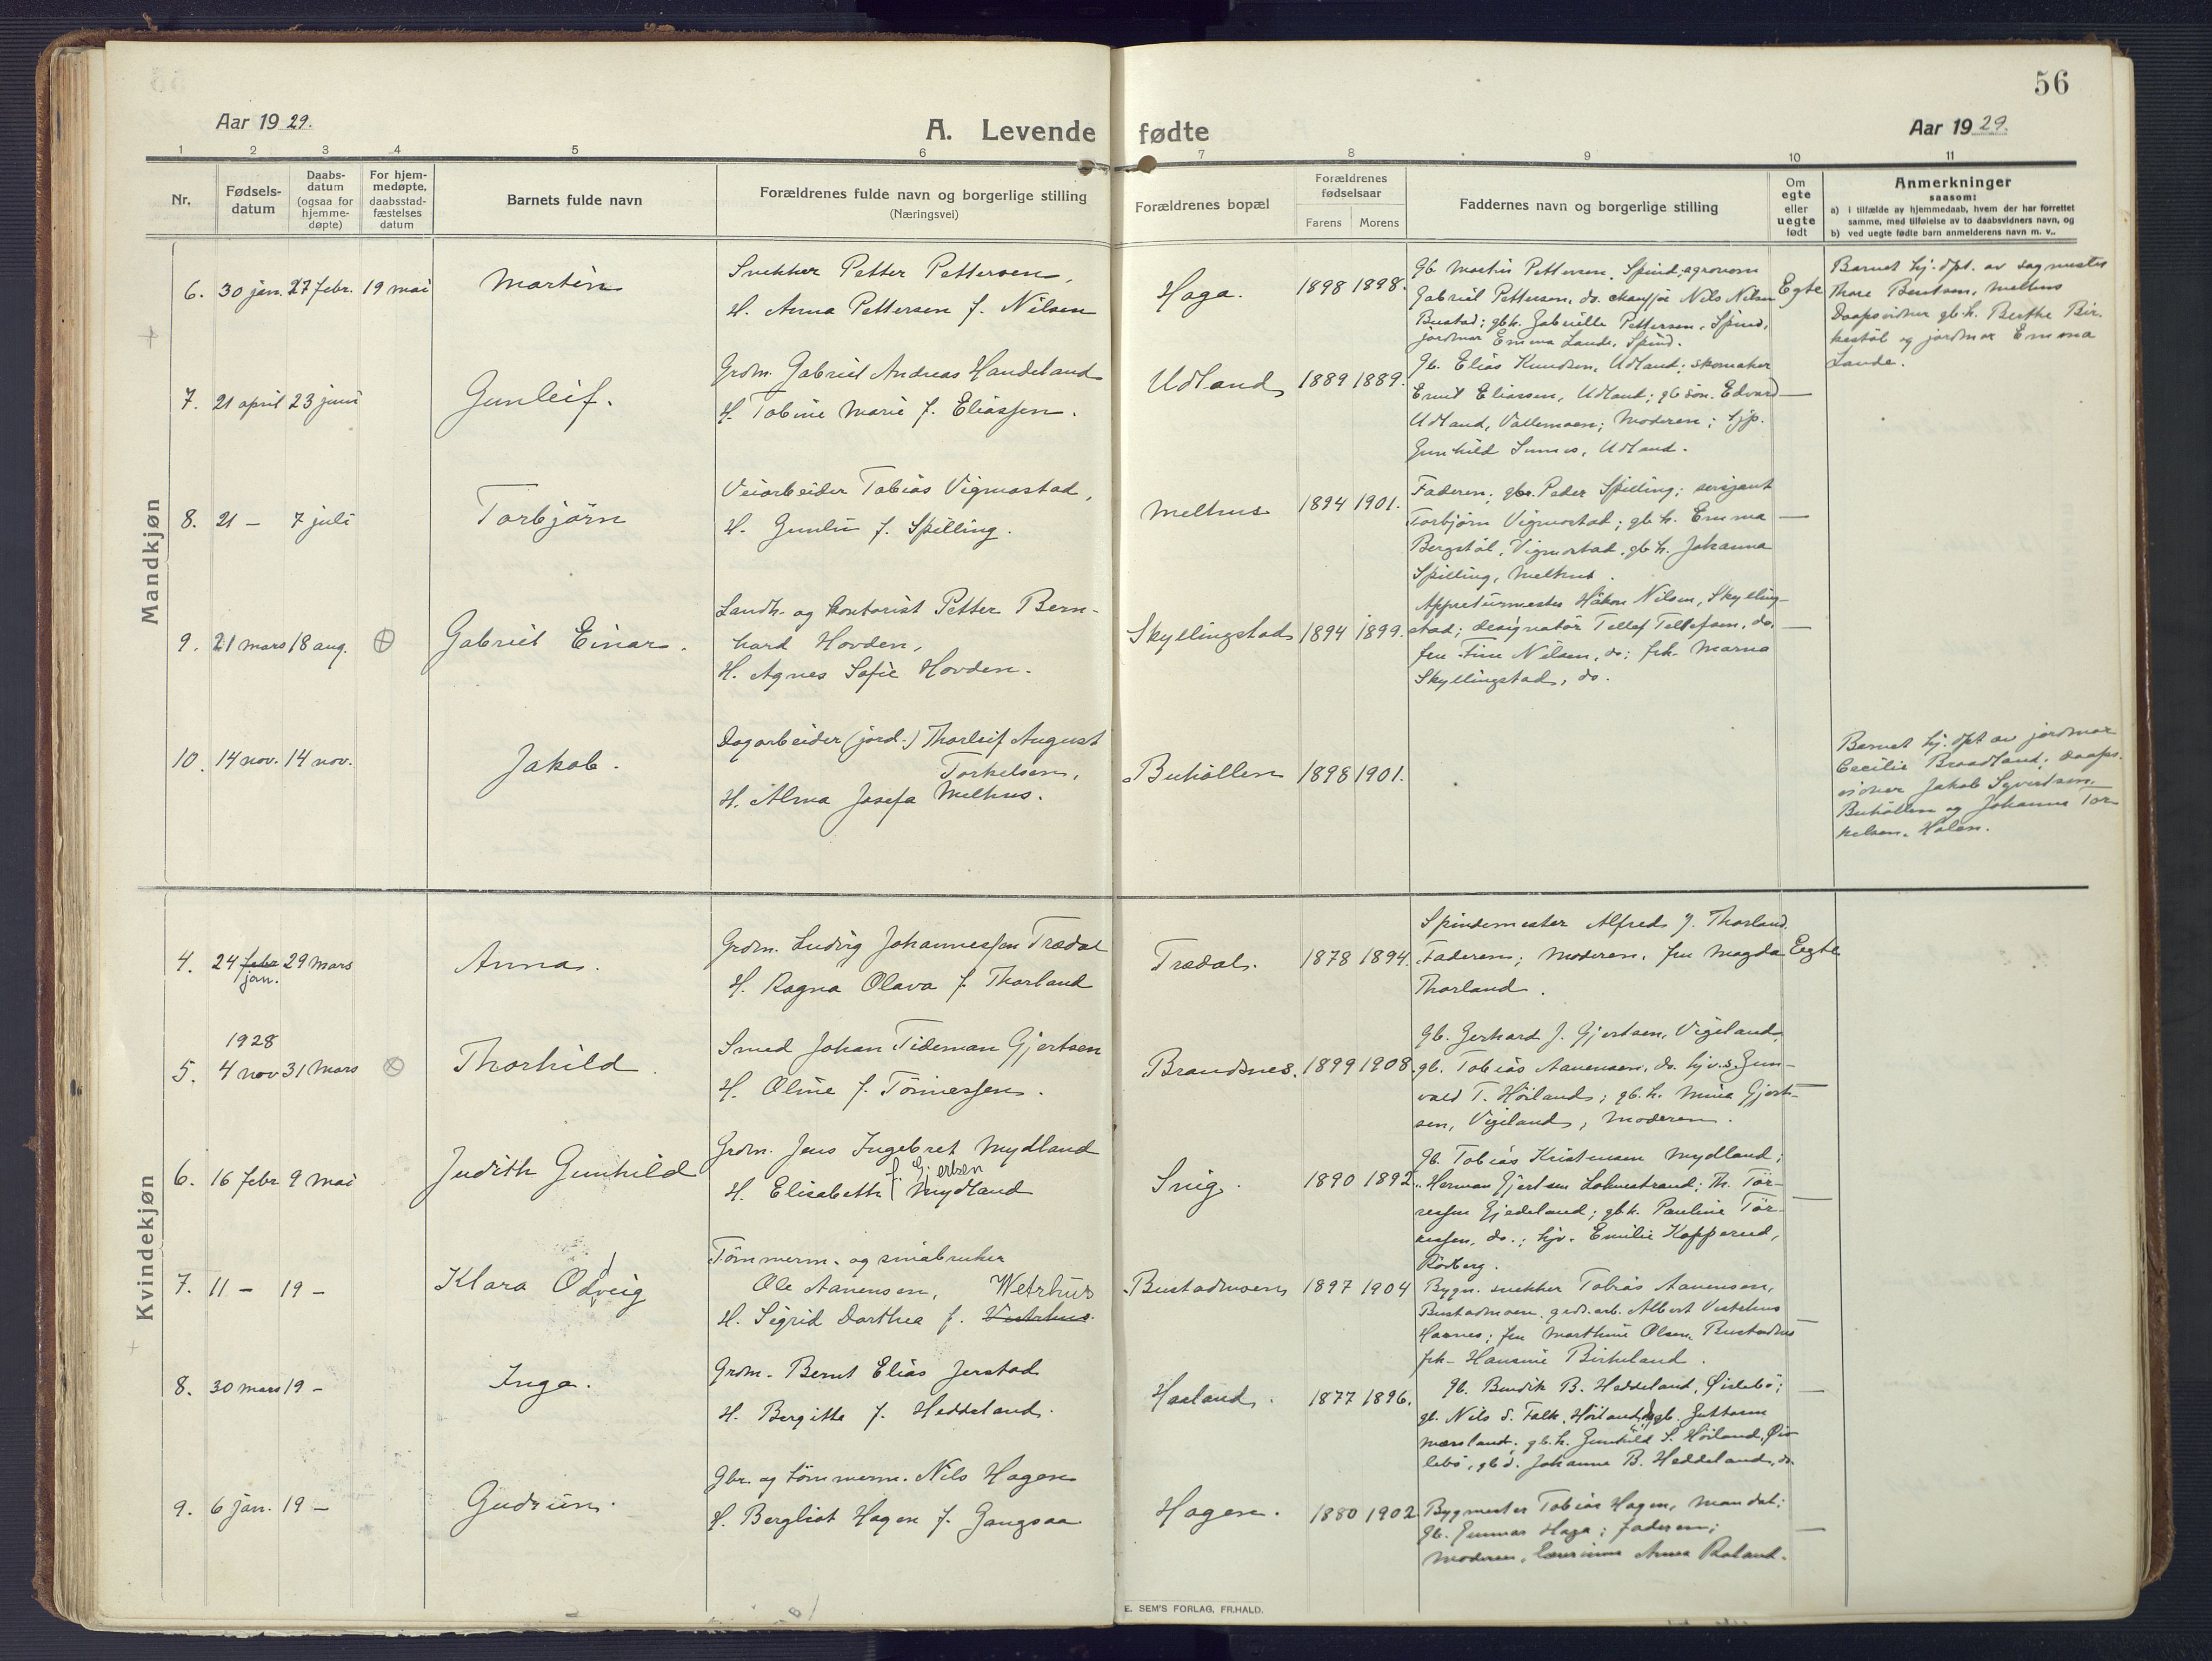 56
Aar 1929.
A. Levende fødte
Aar 1929.
1 2 3 4 5 6 7 8 9 10 11
Nr.
Fødsels-
datum
Daabs-
datum
(ogsaa for
hjemme-
døpte)
For hjem-
medøpte,
daabsstad-
fæstelses
datum
Barnets fulde navn
Forældrenes fulde navn og borgerlige stilling
(Næringsvei)
Forældrenes bopæl
Forældrenes
fødselsaar
Farens Morens
Faddernes navn og borgerlige stilling
Om
egte
eller
uegte
født
Anmerkninger
saasom:
a) i tilfælde av hjemmedaab, hvem der har forrettet
samme, med tilføielse av to daabsvidners navn, og
b) ved uegte fødte barn anmelderens navn m. v..
Mandkjøn
6. 30 jan. 27 febr. 19 mai
Martin
Snekker Petter Pettersen,
H. Anna Pettersen f. Nilsen
Haga.
1898 1898.
Gb. Martin Pettersen, Spind, agronom
Gabriel Pettersen, do. chauffør Nils Nilsen
Bustad; gbk. Gabrielle Pettersen, Spind,
jordmor Emma Lande, Spind.
Egte
Barnet hj. dpt. av sagmester
Thore Bentsen, Melhus
Daapsvidner gb.k. Berthe Bir-
kestøl og jordmor Emma
Lande.
7. 21 april 23 juni
Gunleif.
Grdm. Gabriel Andreas Handeland
H. Tobine Marie f. Eliassen.
Udland
1889 1889.
Gb. Elias Knudsen, Udland; skomaker
Emil Eliassen, Udland; gb søn. Edvard
Udland, Vallemoen; Moderen; tjp.
Gunhild Sunnes, Udland.
—
8. 21 — 7 juli
Torbjørn
Veiarbeider Tobias Vigmostad,
H. Gunlii f. Spilling.
Melhus
1894 1901.
Faderen; gbr. Peder Spilling; sersjant
Torbjørn Vigmostad; gb k. Emma
Bergstøl, Vigmostad, gb k. Johanna
Spilling, Melhus.
—
9. 21 mars 18 aug.
Gabriel Einar.
Landh. og kontorist Petter Bern-
hard Hovden,
H. Agnes Sofie Hovden.
Skyllingstad
1894 1899.
Appreturmester Håkon Nilsen, Skylling-
stad; designatør Tellef Tellefsen, do.
fru Tine Nilsen, do; frk. Marna
Skyllingstad, do.
—
10. 14 nov. 14 nov.
Jakob.
Dagarbeider (jord-) Thorleif August
Torkelsen,
H. Alma Josefa Melhus.
Buhøllen
1898 1901.
Barnet hj. dpt av jordmor
Cecilie Braadland; daaps-
vidner Jakob Syvertsen,
Buhøllen og Johanne Tor-
kelsen, Holen.
Kvindekjøn
4. 24 febr 29 mars
jan.
Anna.
Grdm. Ludvig Johannessen Trædal
H. Ragna Olava f. Thorland
Trædal.
1878 1894.
Spindemester Alfred J. Thorland
Faderen; Moderen, fru Magda
Thorland.
Egte
1928
5. 4 nov 31 mars
Thorhild.
Smed Johan Tideman Gjertsen
H. Oline f. Tønnessen.
Brandsnes.
1899 1908.
Gb. Gerhard J. Gjertsen, Vigeland,
gb. Tobias Aanensen, do. hjv.s. Gun-
vald T. Høiland; gb.k. Mina Gjert-
sen, Vigeland; Moderen.
—
6. 16 febr 9 mai
Judith Gunhild
Grdm. Jens Ingebret Mydland
f. Gjertsen
H. Elisabeth Mydland
Snig.
1890 1892.
Gb. Tobias Kristensen Mydland;
" Herman Gjertsen Lohnestrand; Th. Tør-
ressen Gjedeland; gbk. Pauline Tør-
ressen, do.; hjv. Emilie Kopperud,
Rødberg.
—
7. 11 — 19 —
Klara Odveig
Tømmerm. og småbruker
Ole Aanensen,
Wetrhus
H. Sigrid Dorthea f. Vetrhus.
Bustadmoen
1897 1904
Bygn. snekker Tobias Aanensen,
Bustadmoen, grd. arb. Albert Vetrhus
Haanes; fru Marthine Olsen Bustadmo
frk. Hansine Birkeland.
—
8. 30 mars 19 —
Inga.
Grdm. Bernt Elias Jerstad
H. Bergitte f. Heddeland.
Haaland.
1877 1896.
gb. Bendik B. Heddeland, Øislebø;
gb. Nils S. Falk, Høiland, gb. Guttorm
gb.k. Gunhild S. Høiland, Øis-
lebø, gb d. Johanne B. Heddeland, do
—
9. 6 jan. 19 —
Gudrun.
Gbr. og tømmerm. Nils Hagen
H. Bergliot Hagen f. Gangsaa
Hagen.
1880 1902
Bygmester Tobias Hagen, Mandal;
Gb. Gunnar Haga; Faderen;
Moderen, Lærerinne Anna Roland.
—
E. SEM'S FORLAG, FR.HALD.